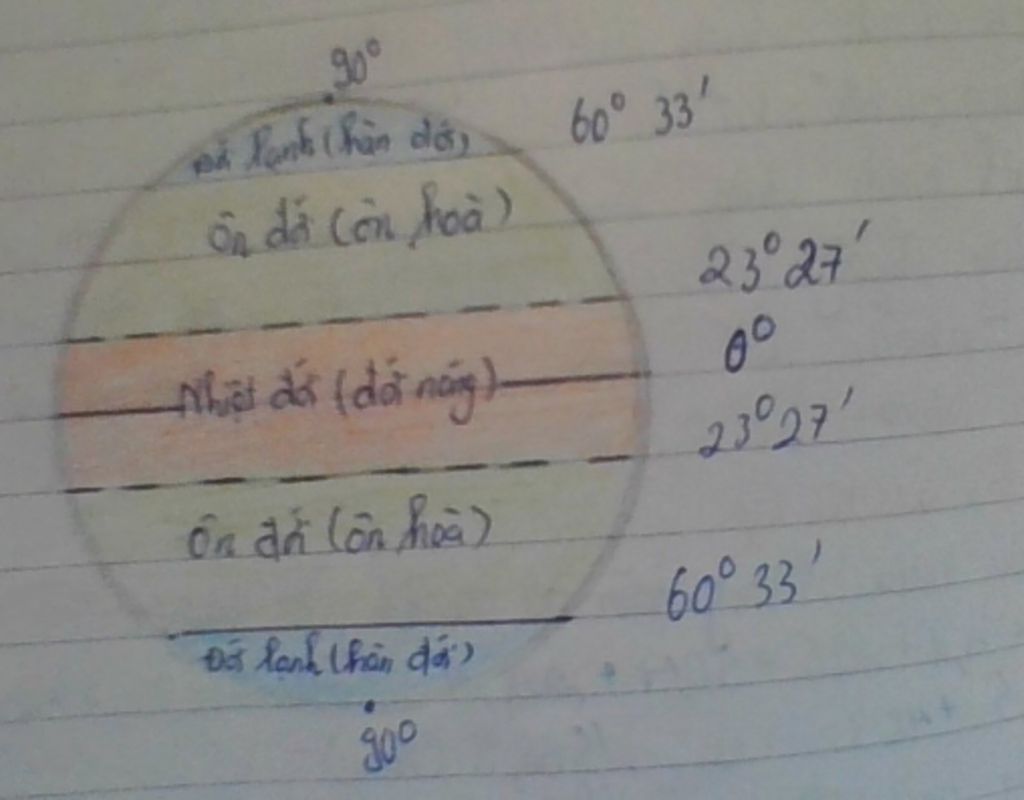 90°
60° 33'
Đới lạnh (hàn đới)
Ôn đới (ôn hoà)
23° 27'
0°
Nhiệt đới (đới nóng)
23° 27'
Ôn đới (ôn hoà)
60° 33'
Đới lạnh (hàn đới)
90°